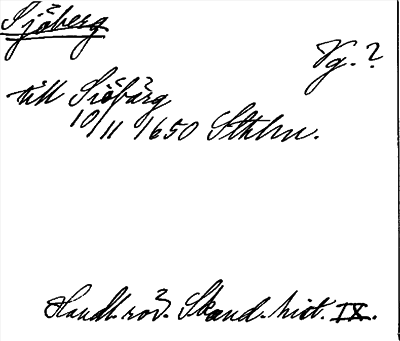 Sjöberg
Vg. ?
till Siöbärg
10/11 1650 Sthlm.
Handl. rör. Skand. hist. IX.